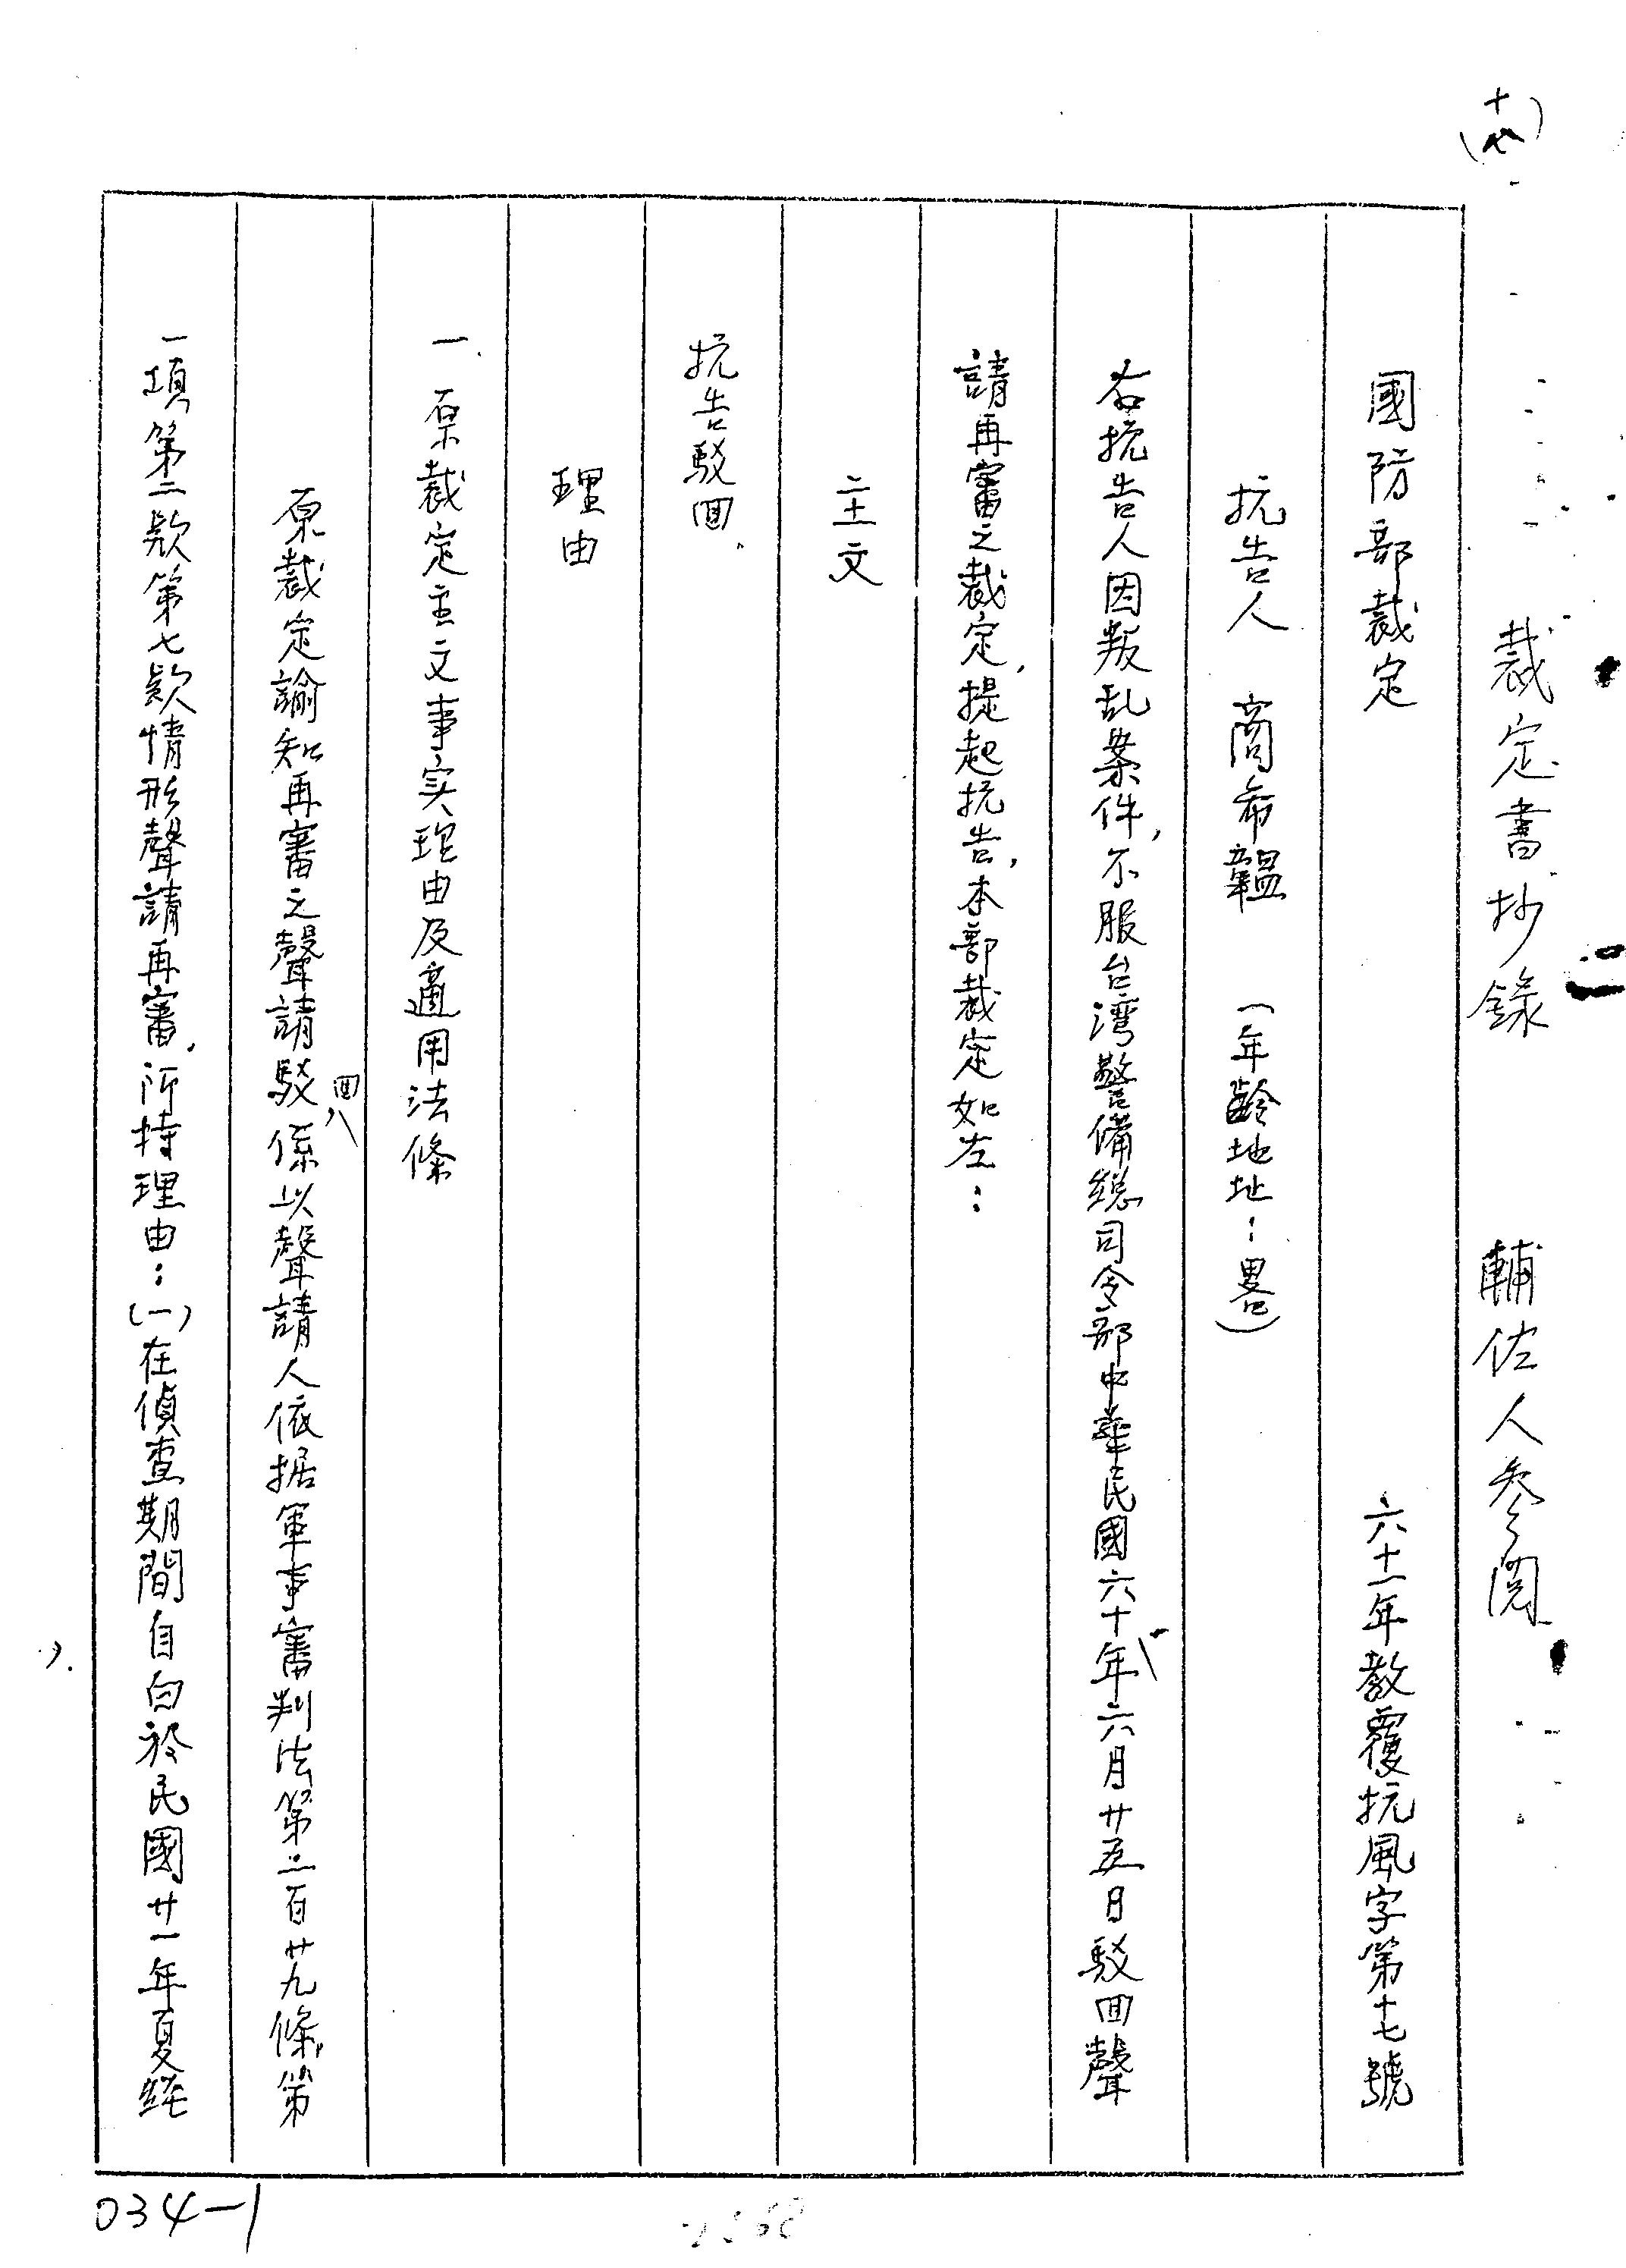 (十七)
裁定書抄錄　輔佐人参閱
國防部裁定　六十一年教覆抗風字第十七號
抗告人　商希韞　(年齡地址：畧)
右抗告人因叛乱案件，不服台湾警備總司令部中華民國六十一年六月廿五日駁回聲
請再審之裁定，提起抗告，本部裁定如左：
主文
抗告駁回、
理由
一、原裁定主文事实理由及適用法條
原裁定諭知再審之聲請駁回，係以聲請人依据軍事審判法第二百廿九條，第
一項第二款第七款情形聲請再審，所持理由：(一)在偵查期間自白於民國廿一年夏經
034-1